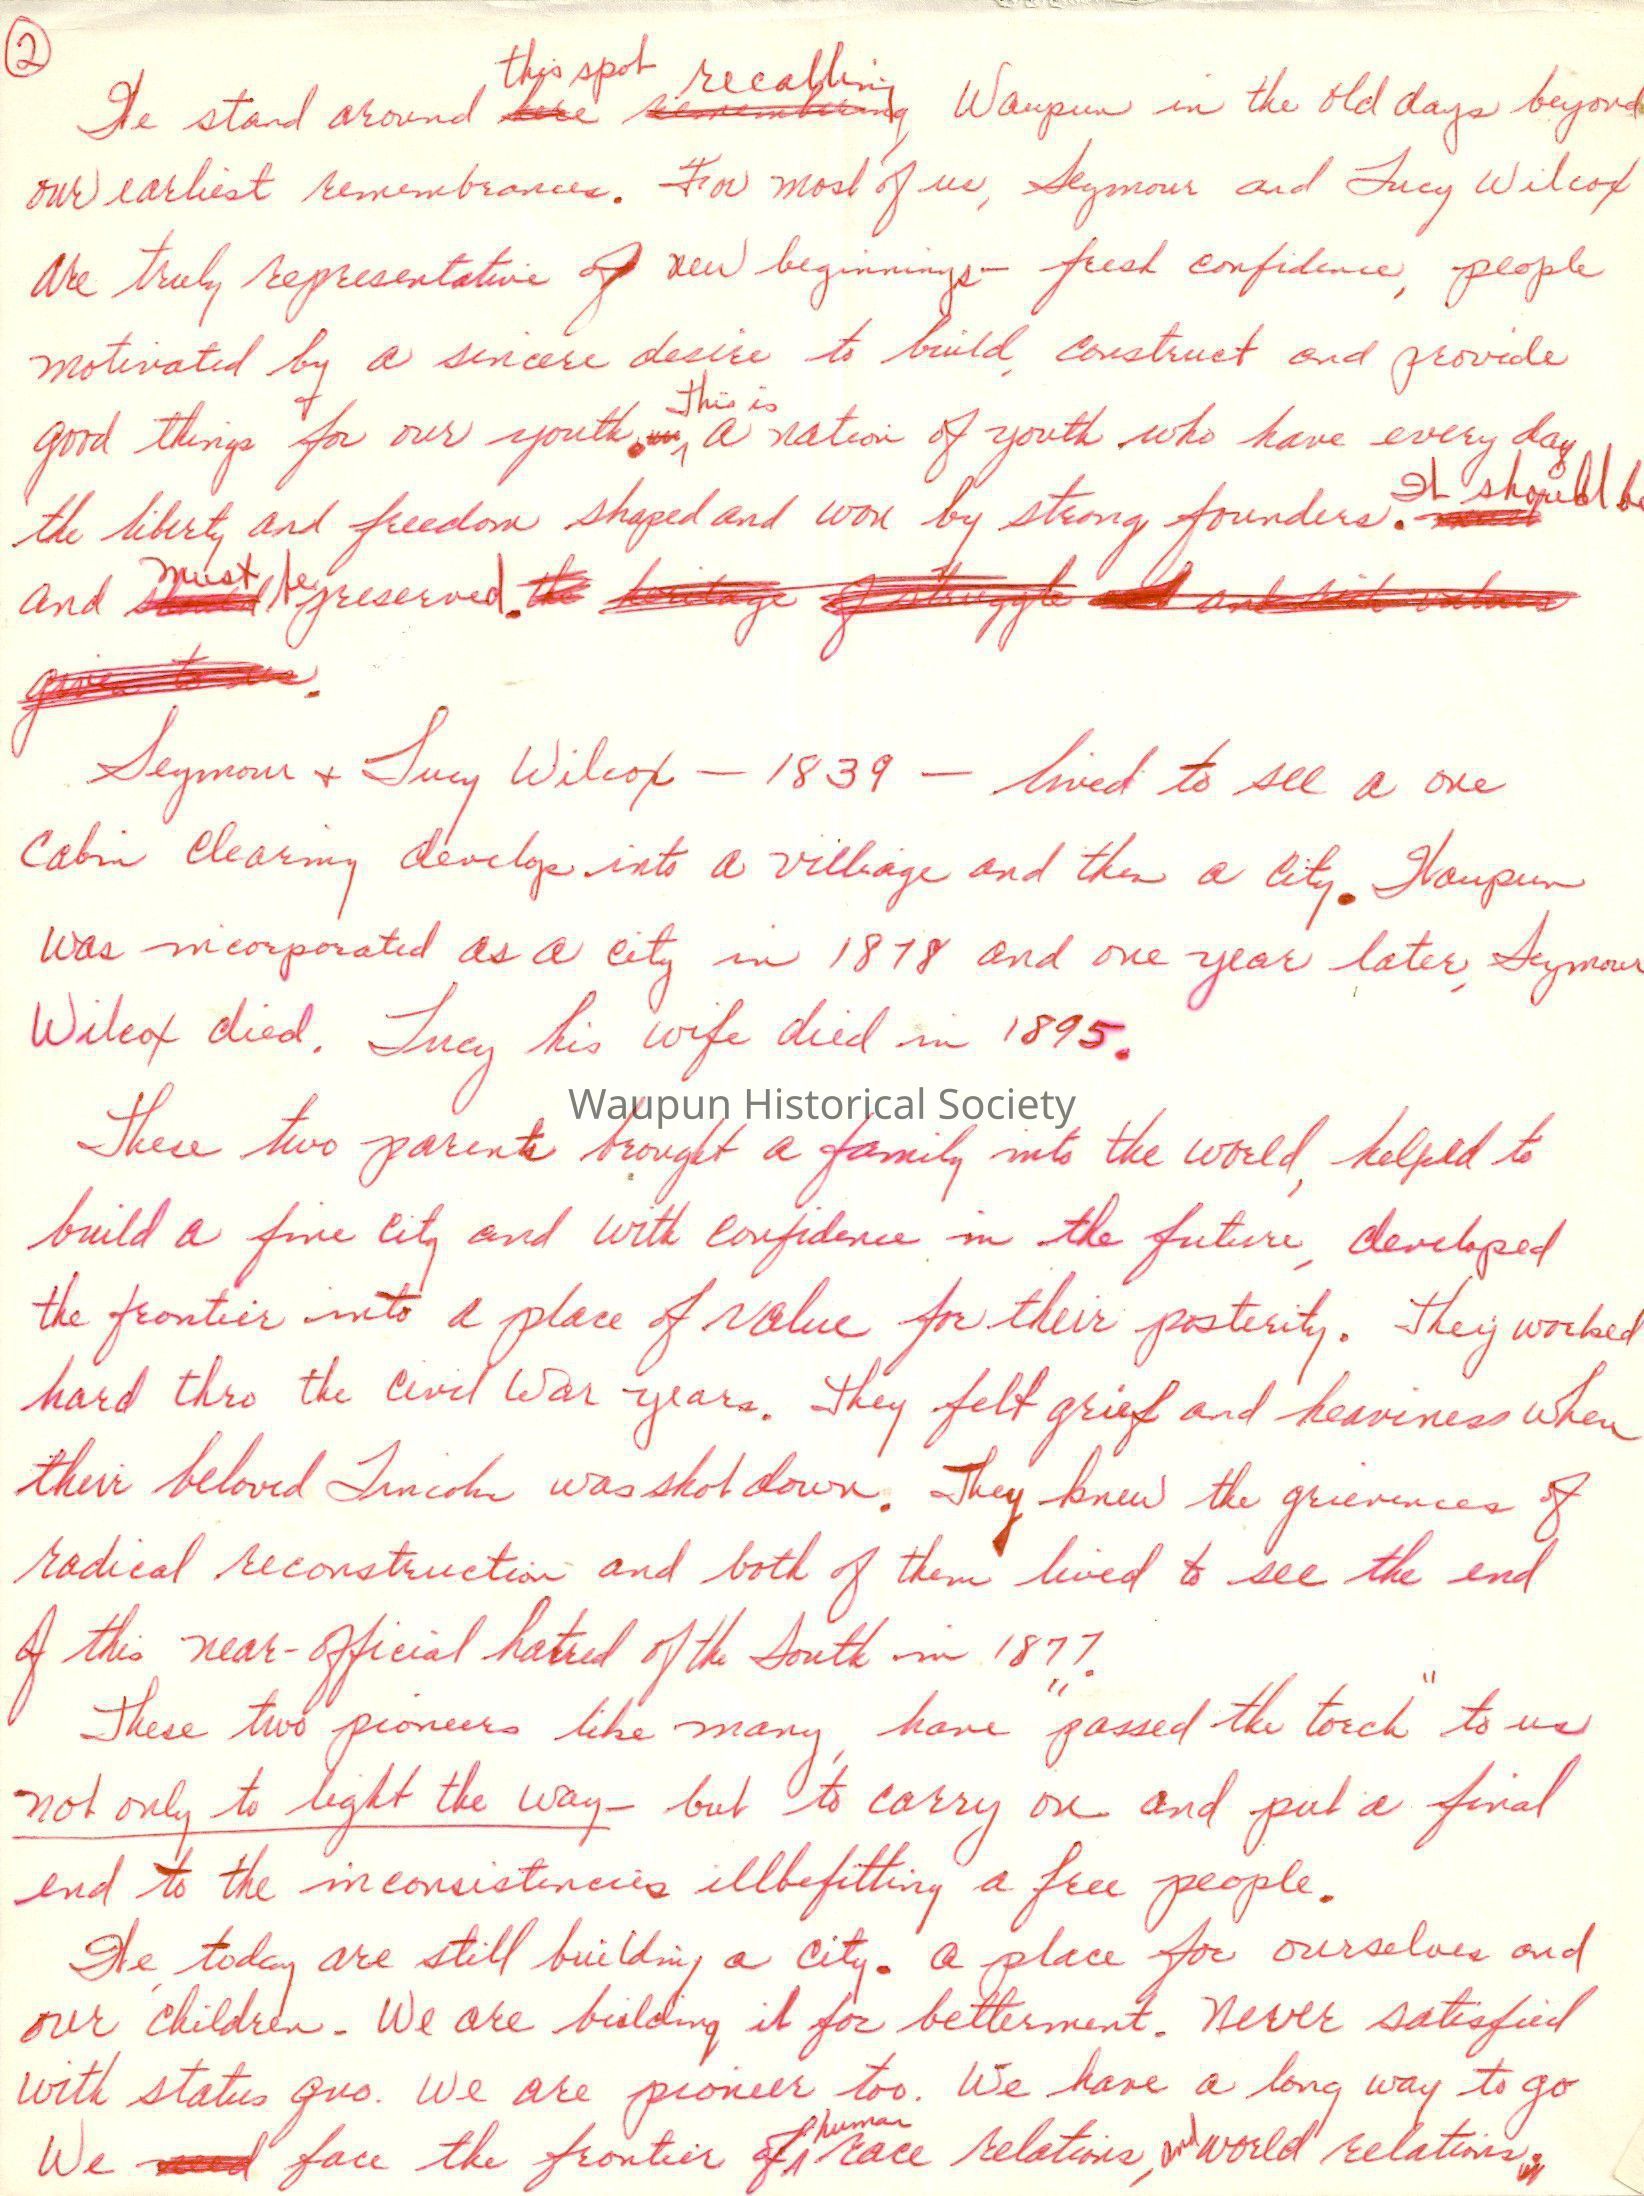 2
this spot recalling
We stand around here remembering, Waupun in the old days beyond
our earliest remembrances. For most of us, Seymour and Lucy Wilcox
are truly representative of new beginnings - fresh confidence, people
motivated by a sincere desire to build, construct and provide
good things for our youth. This is a nation of youth who have every day
the liberty and freedom shaped and won by strong founders. It should be
and should must be preserved. the heritage of struggle and rich values
given to us.
Seymour + Lucy Wilcox — 1839 — lived to see a one
cabin clearing develop into a villiage and then a city. Waupun
was incorporated as a city in 1878 and one year later, Seymour
Wilcox died. Lucy his wife died in 1895.
Waupun Historical Society
These two parents brought a family into the world, helped to
build a fine city and with confidence in the future, developed
the frontier into a place of value for their posterity. They worked
hard thro the Civil War years. They felt grief and heaviness when
their beloved Lincoln was shot down. They knew the grievences of
radical reconstruction and both of them lived to see the end
of this near-official hatred of the South in 1877.
These two pioneers like many, have "passed the torch" to us
not only to light the way - but to carry on and put a final
end to the inconsistencies illbefitting a free people.
We, today are still building a city. a place for ourselves and
our children. We are building it for betterment. Never satisfied
with status quo. We are pioneer too. We have a long way to go
We need face the frontier of human race relations, and world relations